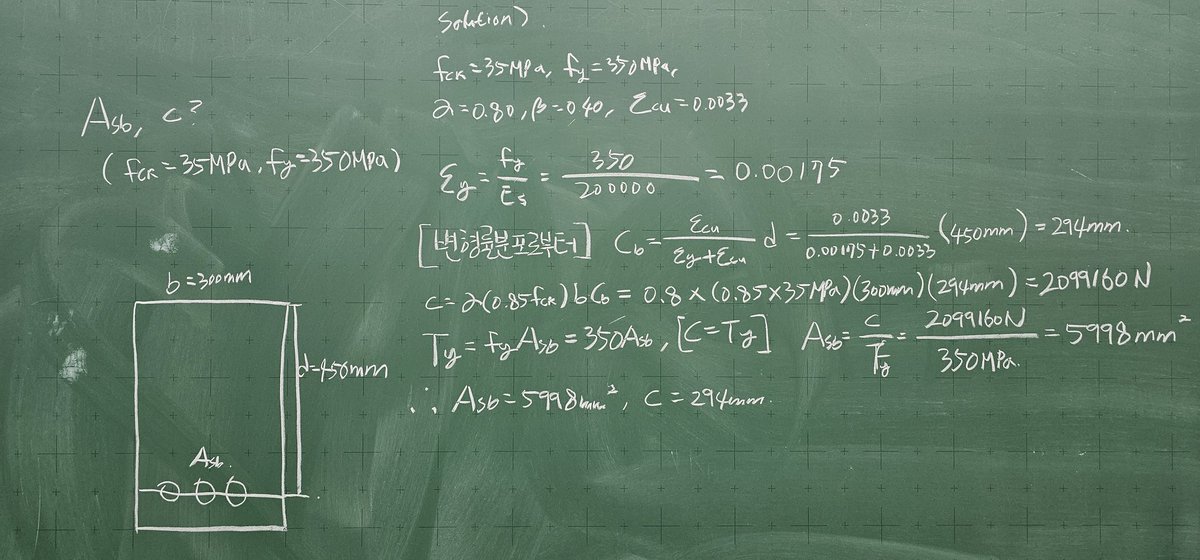 A_sb, c?
(f_ck=35MPa, f_y=350MPa)
b=300mm
d=450mm
A_sb.
Solution).
f_ck=35MPa, f_y=350MPa,
α=0.80, β=0.40, ε_cu=0.0033
ε_y = f_y/E_s = 350/200000 = 0.00175
[변형률분포로부터] C_b = ε_cu/(ε_y+ε_cu) d = 0.0033/(0.00175+0.0033) (450mm) = 294mm.
C=α(0.85f_ck)bC_b = 0.8×(0.85×35MPa)(300mm)(294mm) = 2099160N
T_y = f_y A_sb = 350A_sb, [C=T_y] A_sb = C/f_y = 2099160N/350MPa. = 5998mm²
∴ A_sb=5998mm², C=294mm.